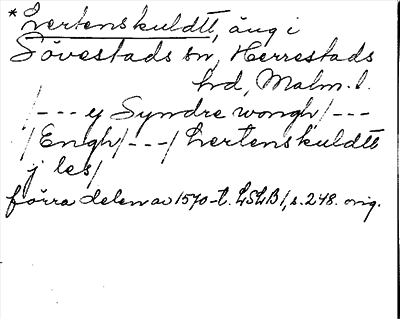 *Lertenskuldtt, äng i
Sövestads sn, Herrestads
hd, Malm. l.
/--- ey Syndre wongh/---
/Engh/---/ Lertenskuldtt
j les/
förra delen av 1570-t. LSLB I, s. 248. orig.